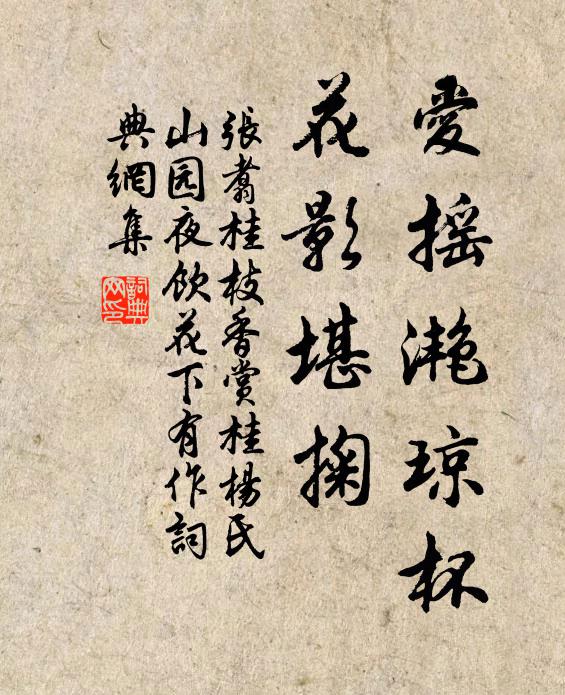 愛摇灩琼杯
花影堪掬
張翥桂枝香賞桂楊氏
山园夜飲花下有作詞
典網集
詞典
网印